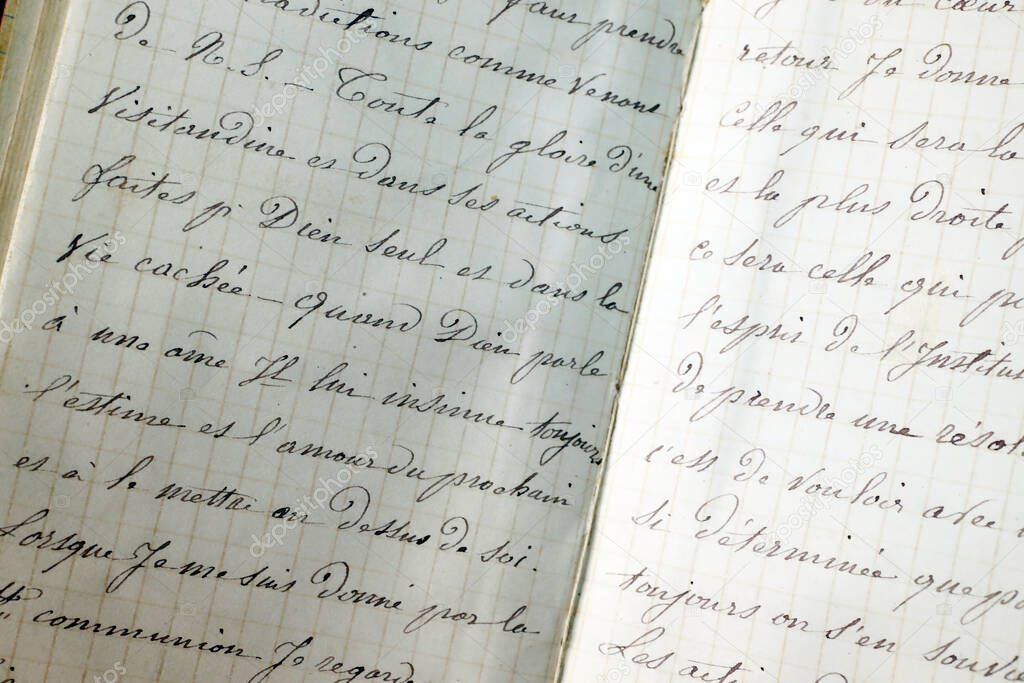 faut prendre
comme venant
de N. S. – Toute la gloire d'une
Visitandine est dans ses actions
faites pr Dieu seul et dans la
Vie cachée – quand Dieu parle
à une âme Il lui insinue toujours
l'estime et l'amour du prochain
et à le mettre au dessus de soi.
Lorsque Je me suis donné par la
Ste communion Je regarde
cœur
retour Je donne
Celle qui sera la
et la plus droite
ce sera celle qui
l'esprit de l'Institut
De prendre une
c'est de vouloir avec
si déterminée que
toujours on s'en
Les